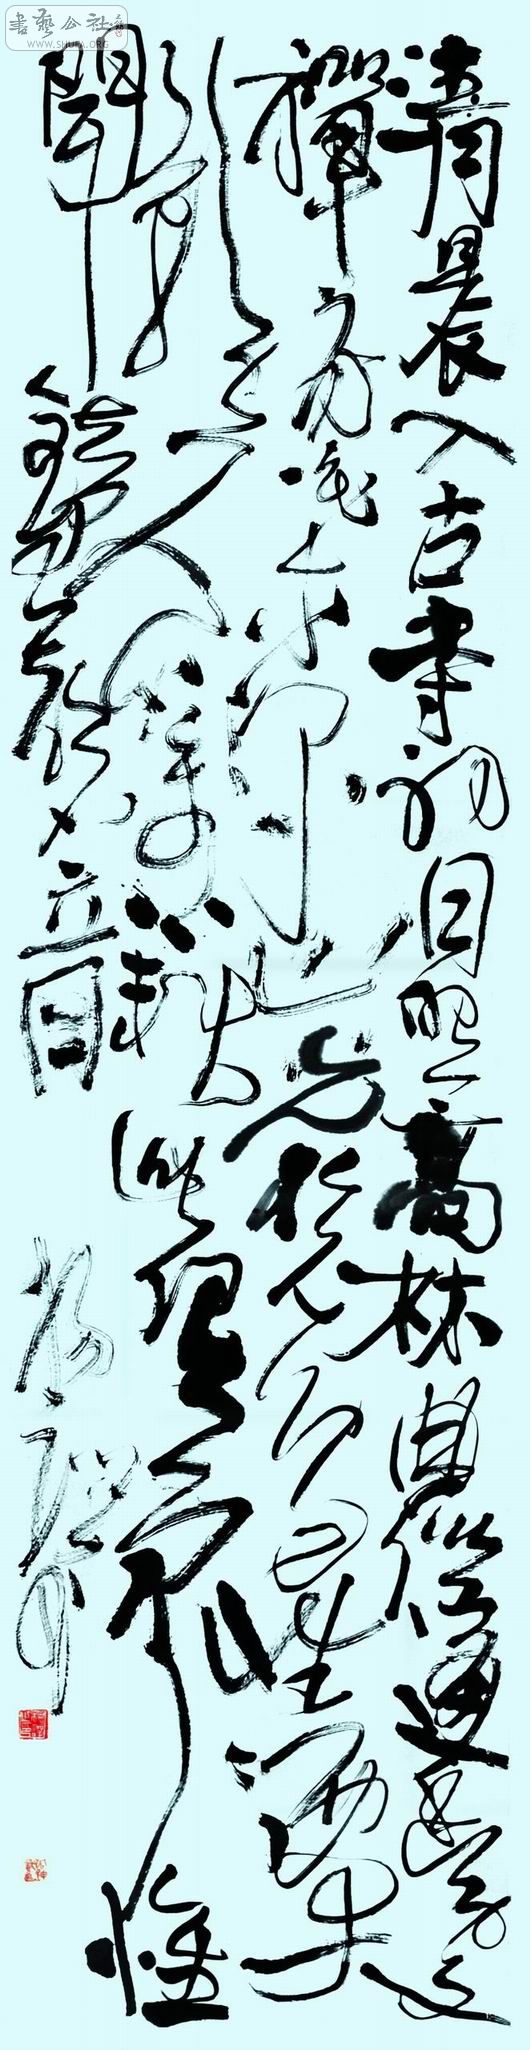 書藝公社
WWW.SHUFA.ORG
清晨入古寺初日照高林曲徑通幽處
禪房花木深山光悅鳥性潭
影空人心萬籟此俱寂惟
聞鐘磬音